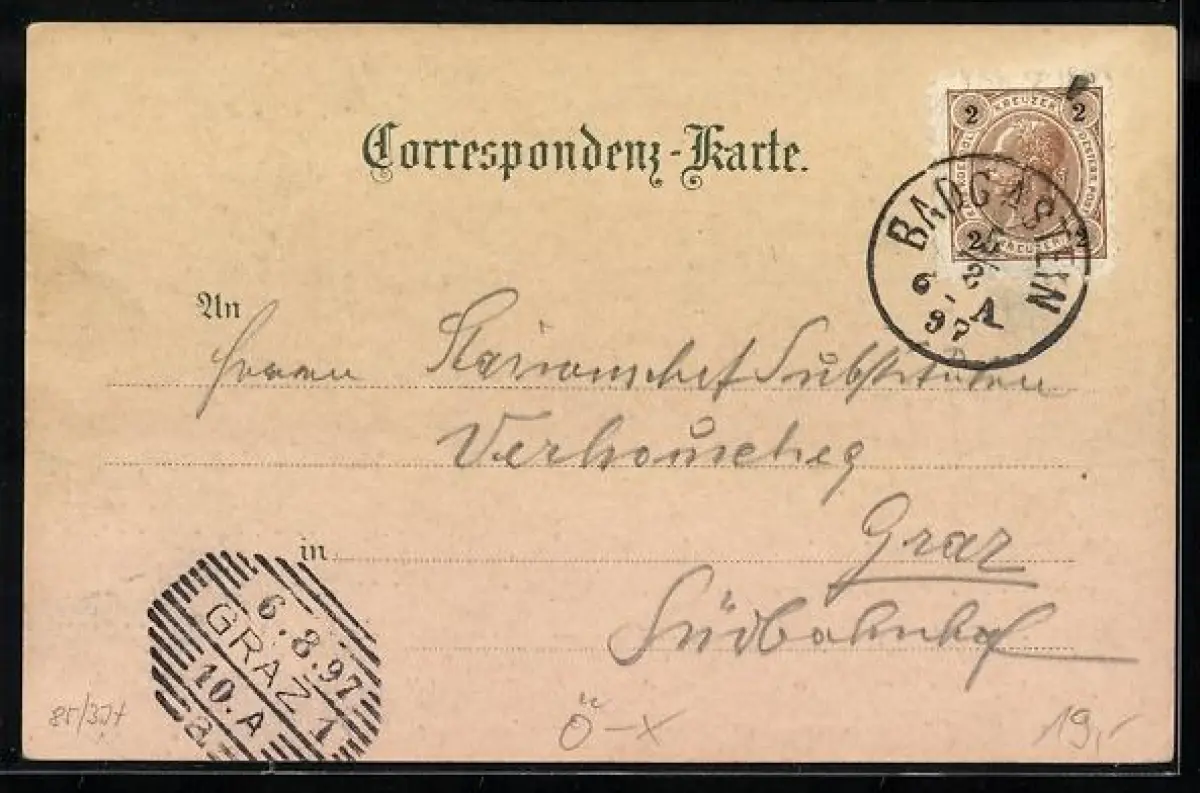 Correspondenz-Karte.
2 KREUZER 2
2 KREUZER 2
BADGASTEIN
5/8
6 A
97
An
Herrn Stationschef Substituten
Verhouscheg
in
Graz
Südbahnhof
6.8.97
GRAZ 1
10.A
a
Ö-X
19,-